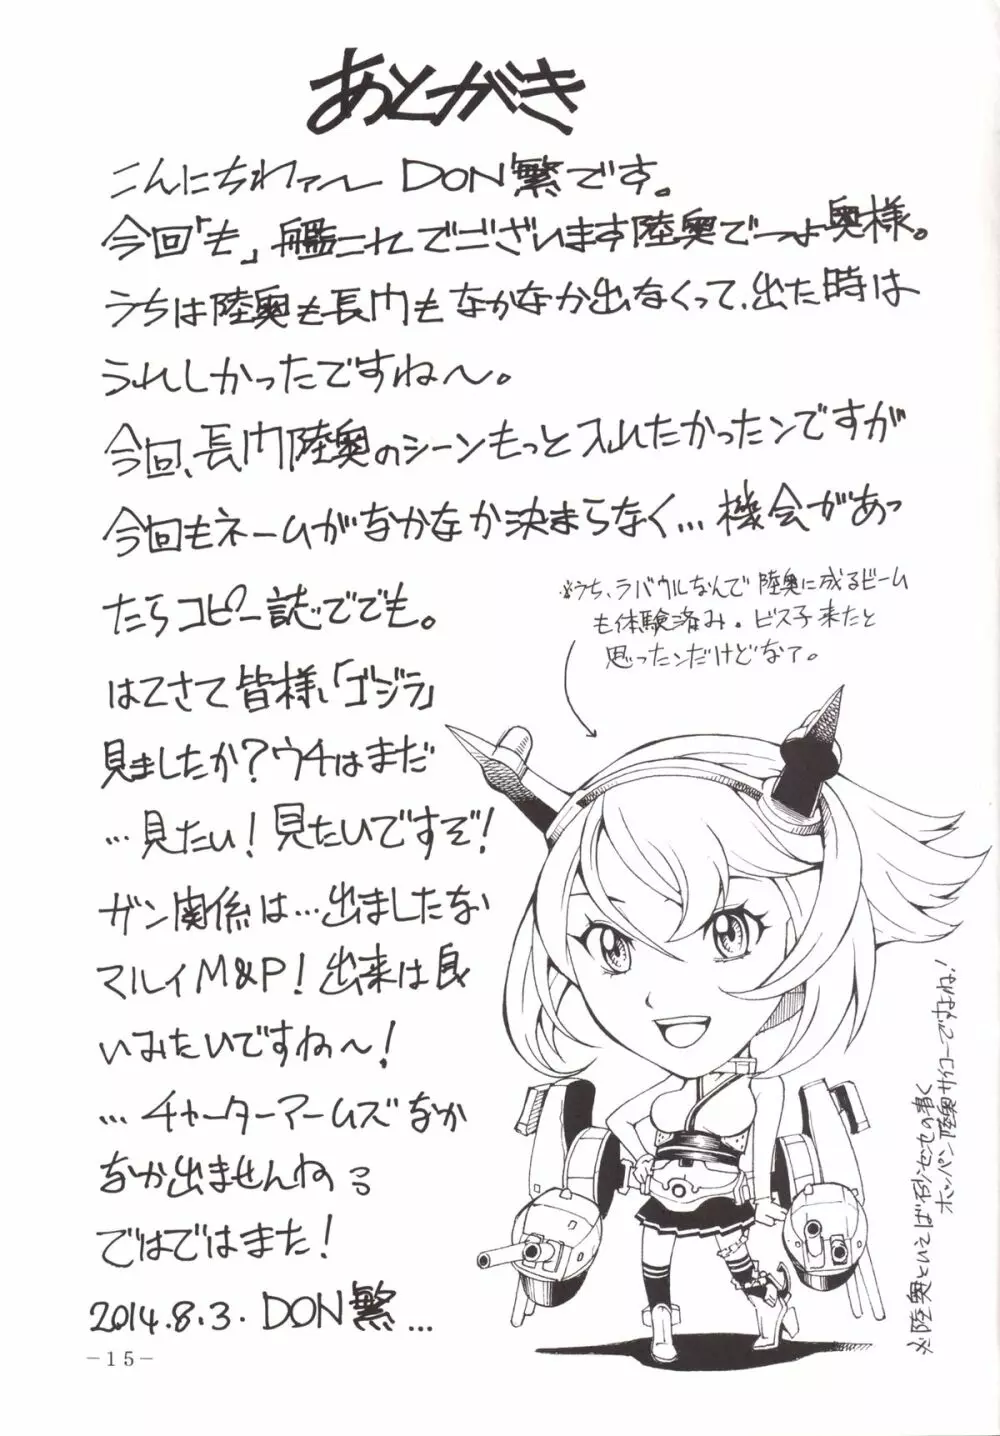 あとがき
こんにちわァ〜 DON繁です。
今回「も」艦これでございます陸奥でっしょ奥様。
うちは陸奥も長門もなかなか出なくって、出た時は
うれしかったですね〜。
今回、長門陸奥のシーンもっと入れたかったンですが
今回もネームがなかなか決まらなく…機会があっ
たらコピー誌ででも。
※うち、ラバウルなんで陸奥に成るビーム
も体験済み。ビス子来たと
思ったンだけどなァ。
はてさて皆様、「ゴジラ」
見ましたか?ウチはまだ
…見たい!見たいですぞ!
ガン関係は…出ましたな
マルイM&P!出来は良
いみたいですね〜!
…チャーターアームズなか
なか出ませんねっ
ではではまた!
2014.8.3. DON繁…
※陸奥といえば
陸奥サイコーですよね!
-15-